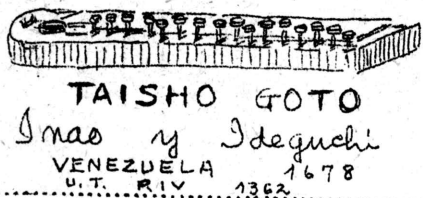 TAISHO GOTO
Inao y Ideguchi
VENEZUELA 1678
U.T. RIV 1362